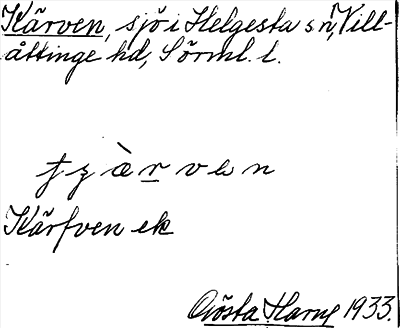 Kärven, sjö i Helgesta sn, Vill-
åttinge hd, Sörml. l.
tʒärven
Kärfven ek
Gösta Harng 1933.